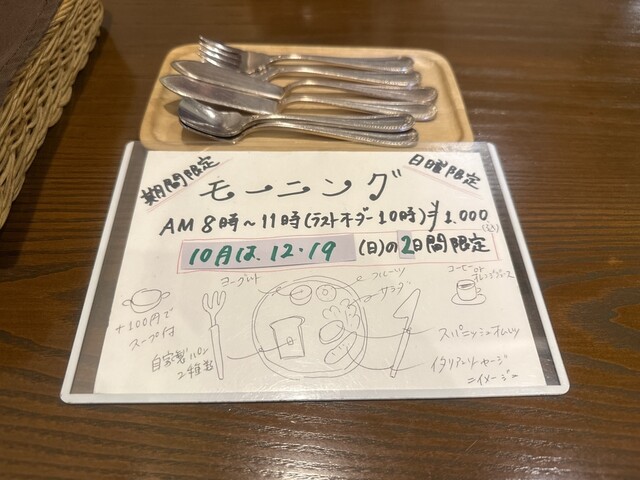 期間限定
モーニング
日曜限定
AM 8時～11時(ラストオーダー10時) ¥1.000
10月は.12・19 (日)の2日間限定
ヨーグルト
フルーツ
サラダ
コーヒーor
オレンジジュース
+100円で
スープ付
自家製パン
2種類
スパニッシュオムレツ
イタリアンソーセージ
=イメージ=